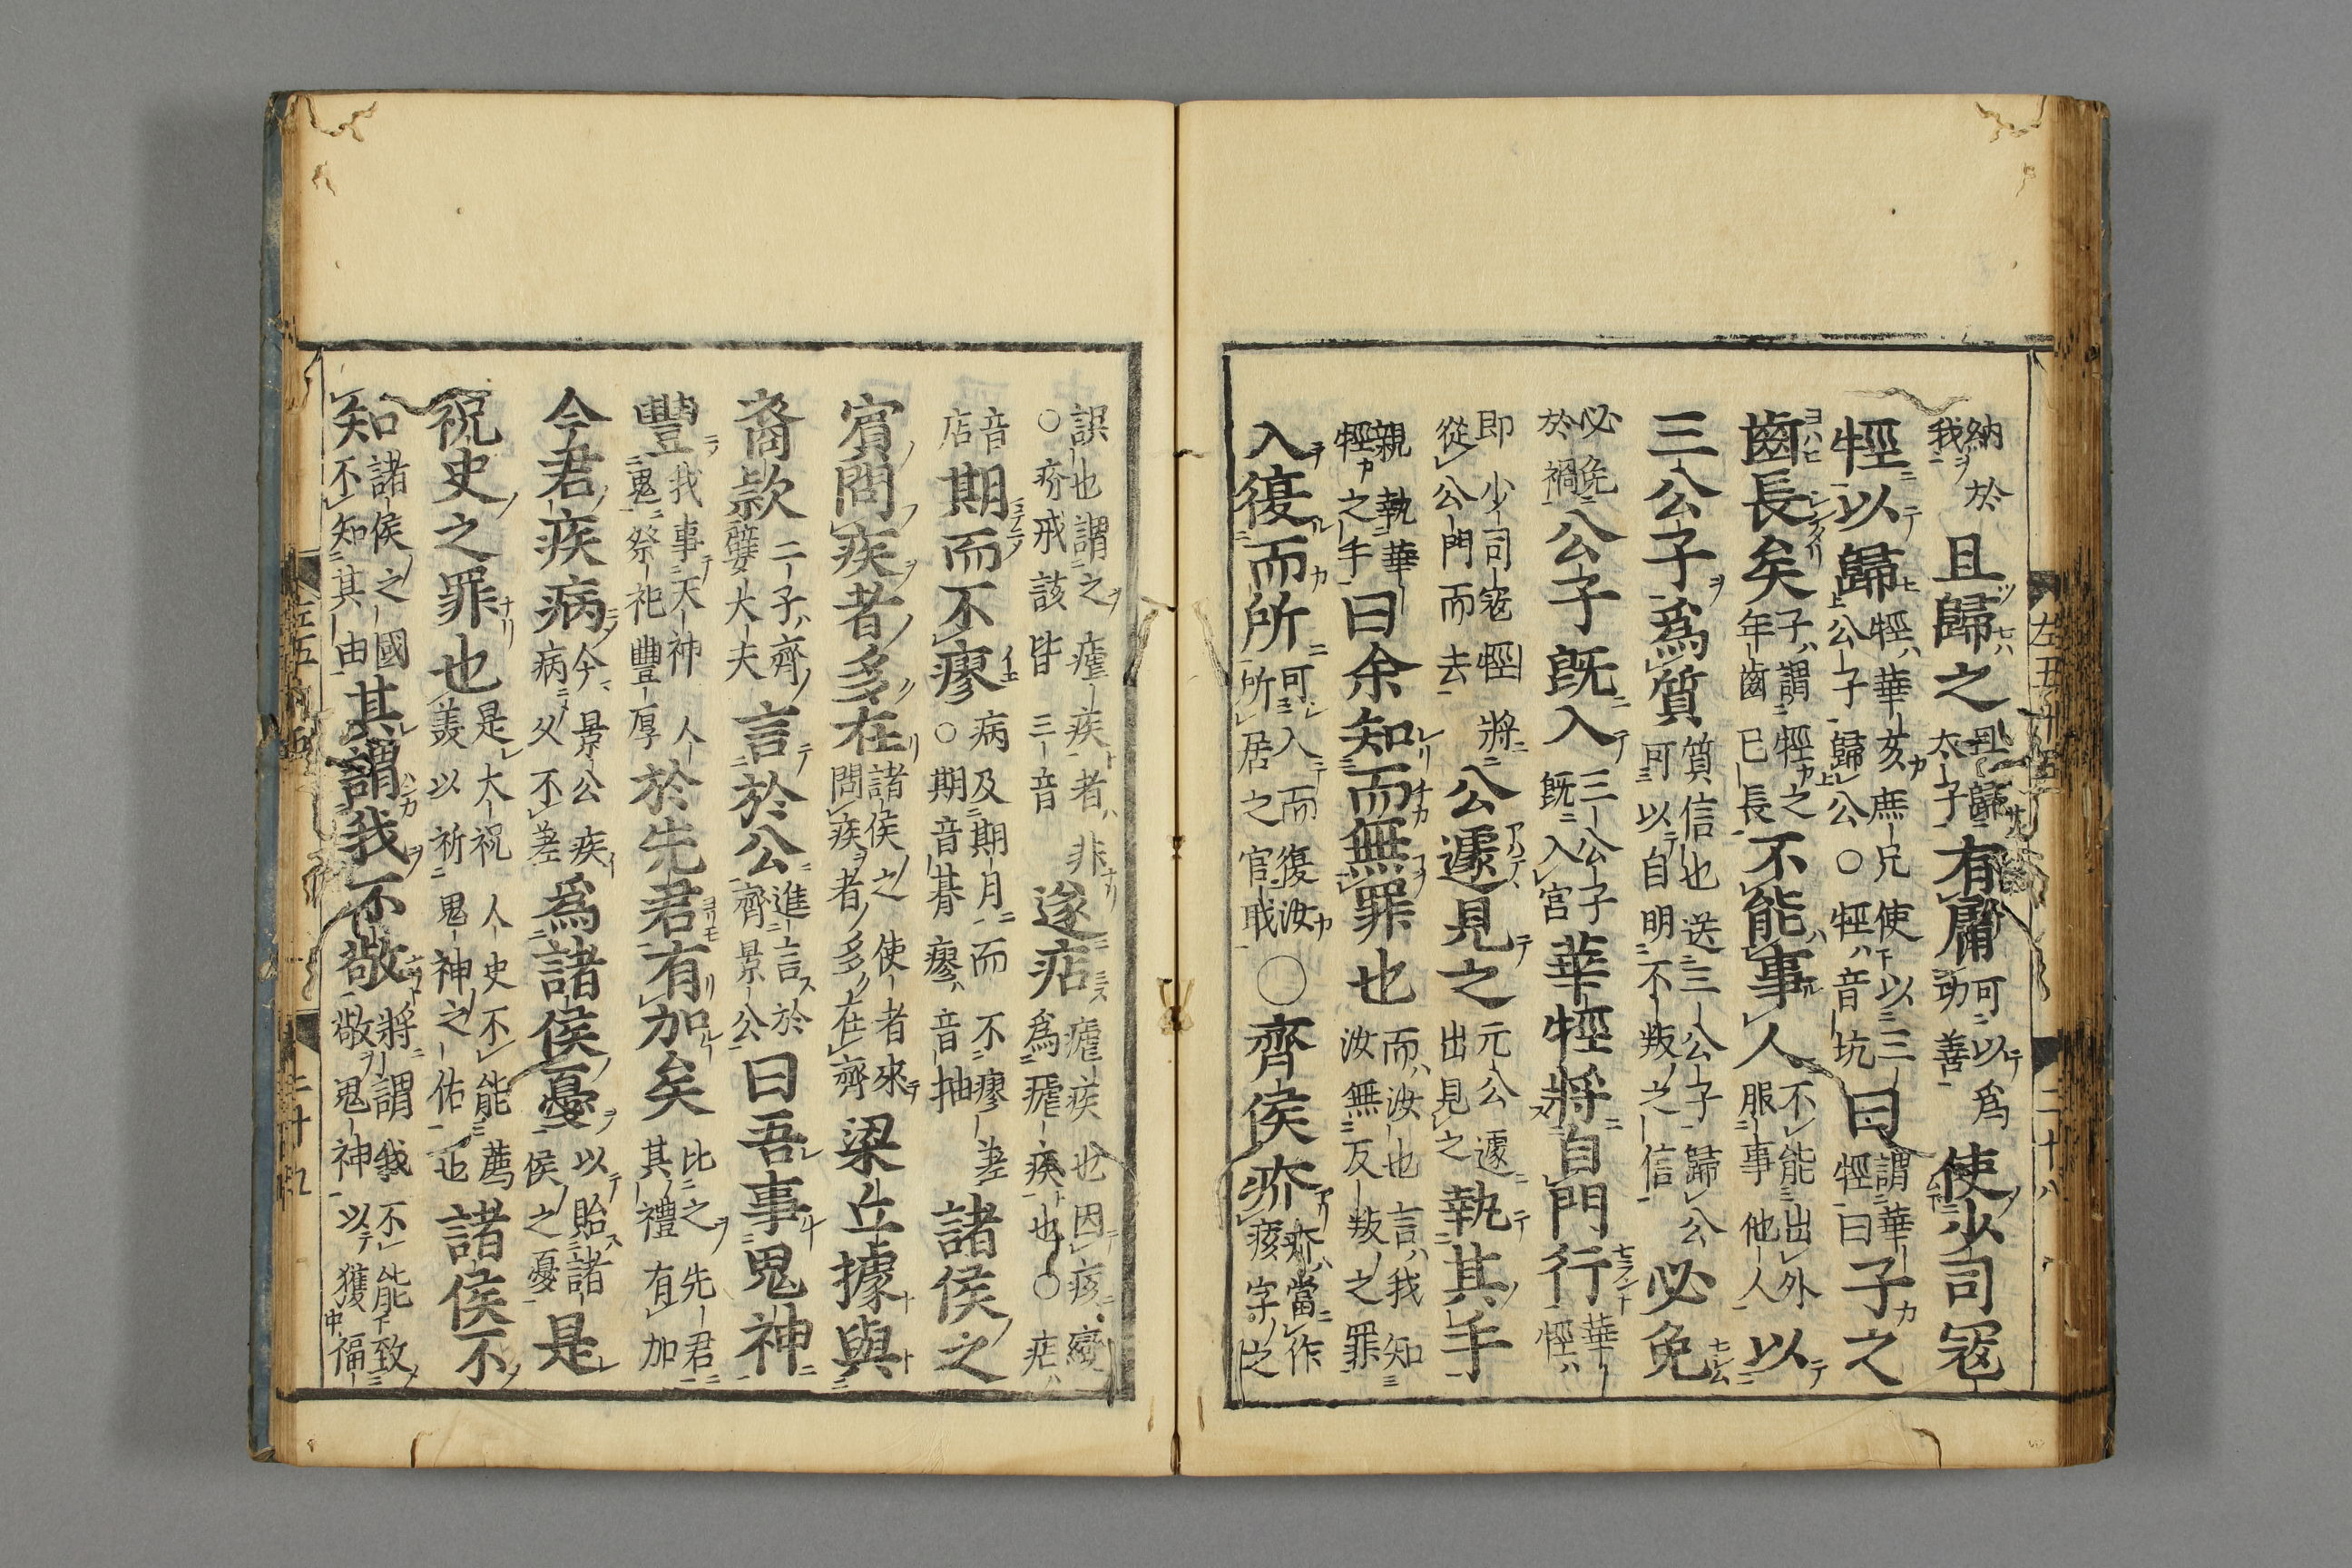 納於我且歸之且歸太子有庸可以爲功善使少司寇
牼以歸牼華亥庶兄使以三公子歸公○牼音坑曰謂華牼曰子之
齒長矣子謂牼之年齒已長不能事人不能出外服事他人以
三公子爲質質信也送三公子歸公可以自明不叛之信必免
必免於禍公子既入三公子既入宮華牼將自門行華牼
即少司寇牼將從公門而去公遽見之元公遽出見之執其手
親執華牼之手曰余知而無罪也而汝也言我知汝無反叛之罪
入復而所可入而復汝所居之官職○齊侯疥疥當作痎字之
誤也謂之瘧疾者非遂痁瘧疾也因痎變爲瘧疾也○痁
○疥戒該皆三音
音店期而不瘳病及期月而不瘳差○期音朞瘳音抽諸侯之
賓問疾者多在諸侯之使者來問疾者多在齊梁丘據與
裔款二子齊嬖大夫言於公進言於齊景公曰吾事鬼神
豐我事天神人鬼祭祀豐厚於先君有加矣比之先君其禮有加
今君疾病今景公疾病又不差爲諸侯憂以貽諸侯之憂是
祝史之罪也是大祝人史不能薦羙以祈鬼神之佑也諸侯不
知諸侯之國不知其由其謂我不敬將謂我不能致敬鬼神以獲福
左五十五
二十八
二十九